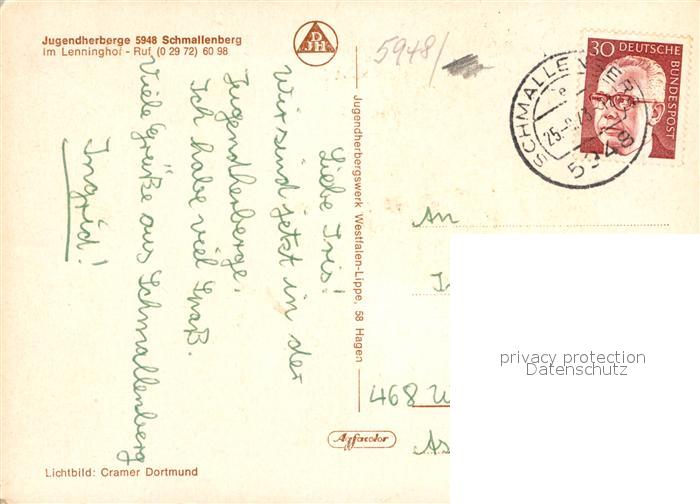 Jugendherberge 5948 Schmallenberg
Im Lenninghof - Ruf (0 29 72) 60 98
DJH
5948/
30 DEUTSCHE
BUNDESPOST
SCHMALLENBERG
25.-
5948
Liebe Iris!
Wir sind jetzt in der
Jugendherberge.
Ich habe viel Spaß.
Viele Grüße aus Schmallenberg
Ingrid!
Jugendherbergswerk Westfalen-Lippe, 58 Hagen
An
468 W
As
privacy protection
Datenschutz
Agfacolor
Lichtbild: Cramer Dortmund